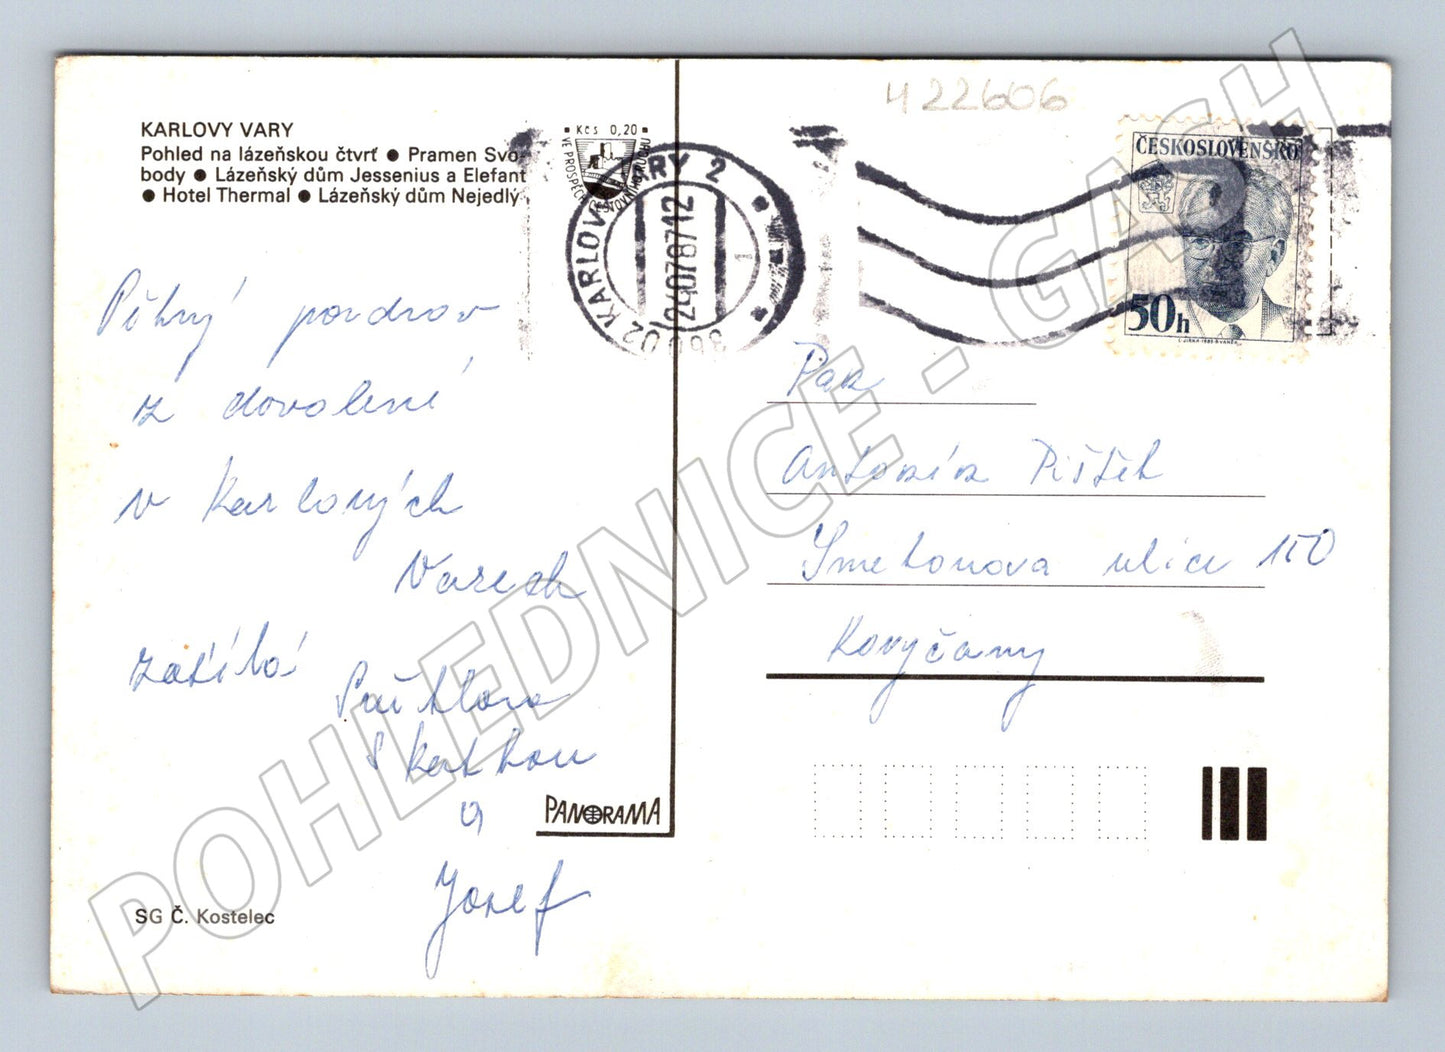 KARLOVY VARY
Pohled na lázeňskou čtvrť ● Pramen Svo-
body ● Lázeňský dům Jessenius a Elefant
● Hotel Thermal ● Lázeňský dům Nejedlý
Pěkný pozdrav
z dovolené
v Karlových
Varech
zasílá
a
Josef
SG Č. Kostelec
PANORAMA
Kčs 0,20
VE PROSPĚCH CESTOVNÍHO RUCHU
KARLOVY VARY 2
24.07.87.12
360 02
1
422606
ČESKOSLOVENSKO
50h
Pan
Antonín Pištěk
Smetanova ulice 150
POHLEDNICE - GASH